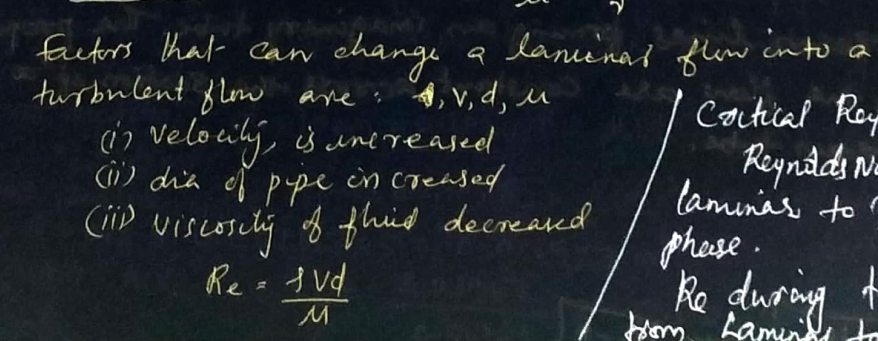 factors that can change a laminar flow into a
turbulent flow are : ρ, v, d, μ
(i) velocity, is increased
(ii) dia of pipe increased
(iii) viscosity of fluid decreased
Re = ρVd
μ
Critical Rey
Reynolds No
laminar to
phase.
Re during t
from Laminar to